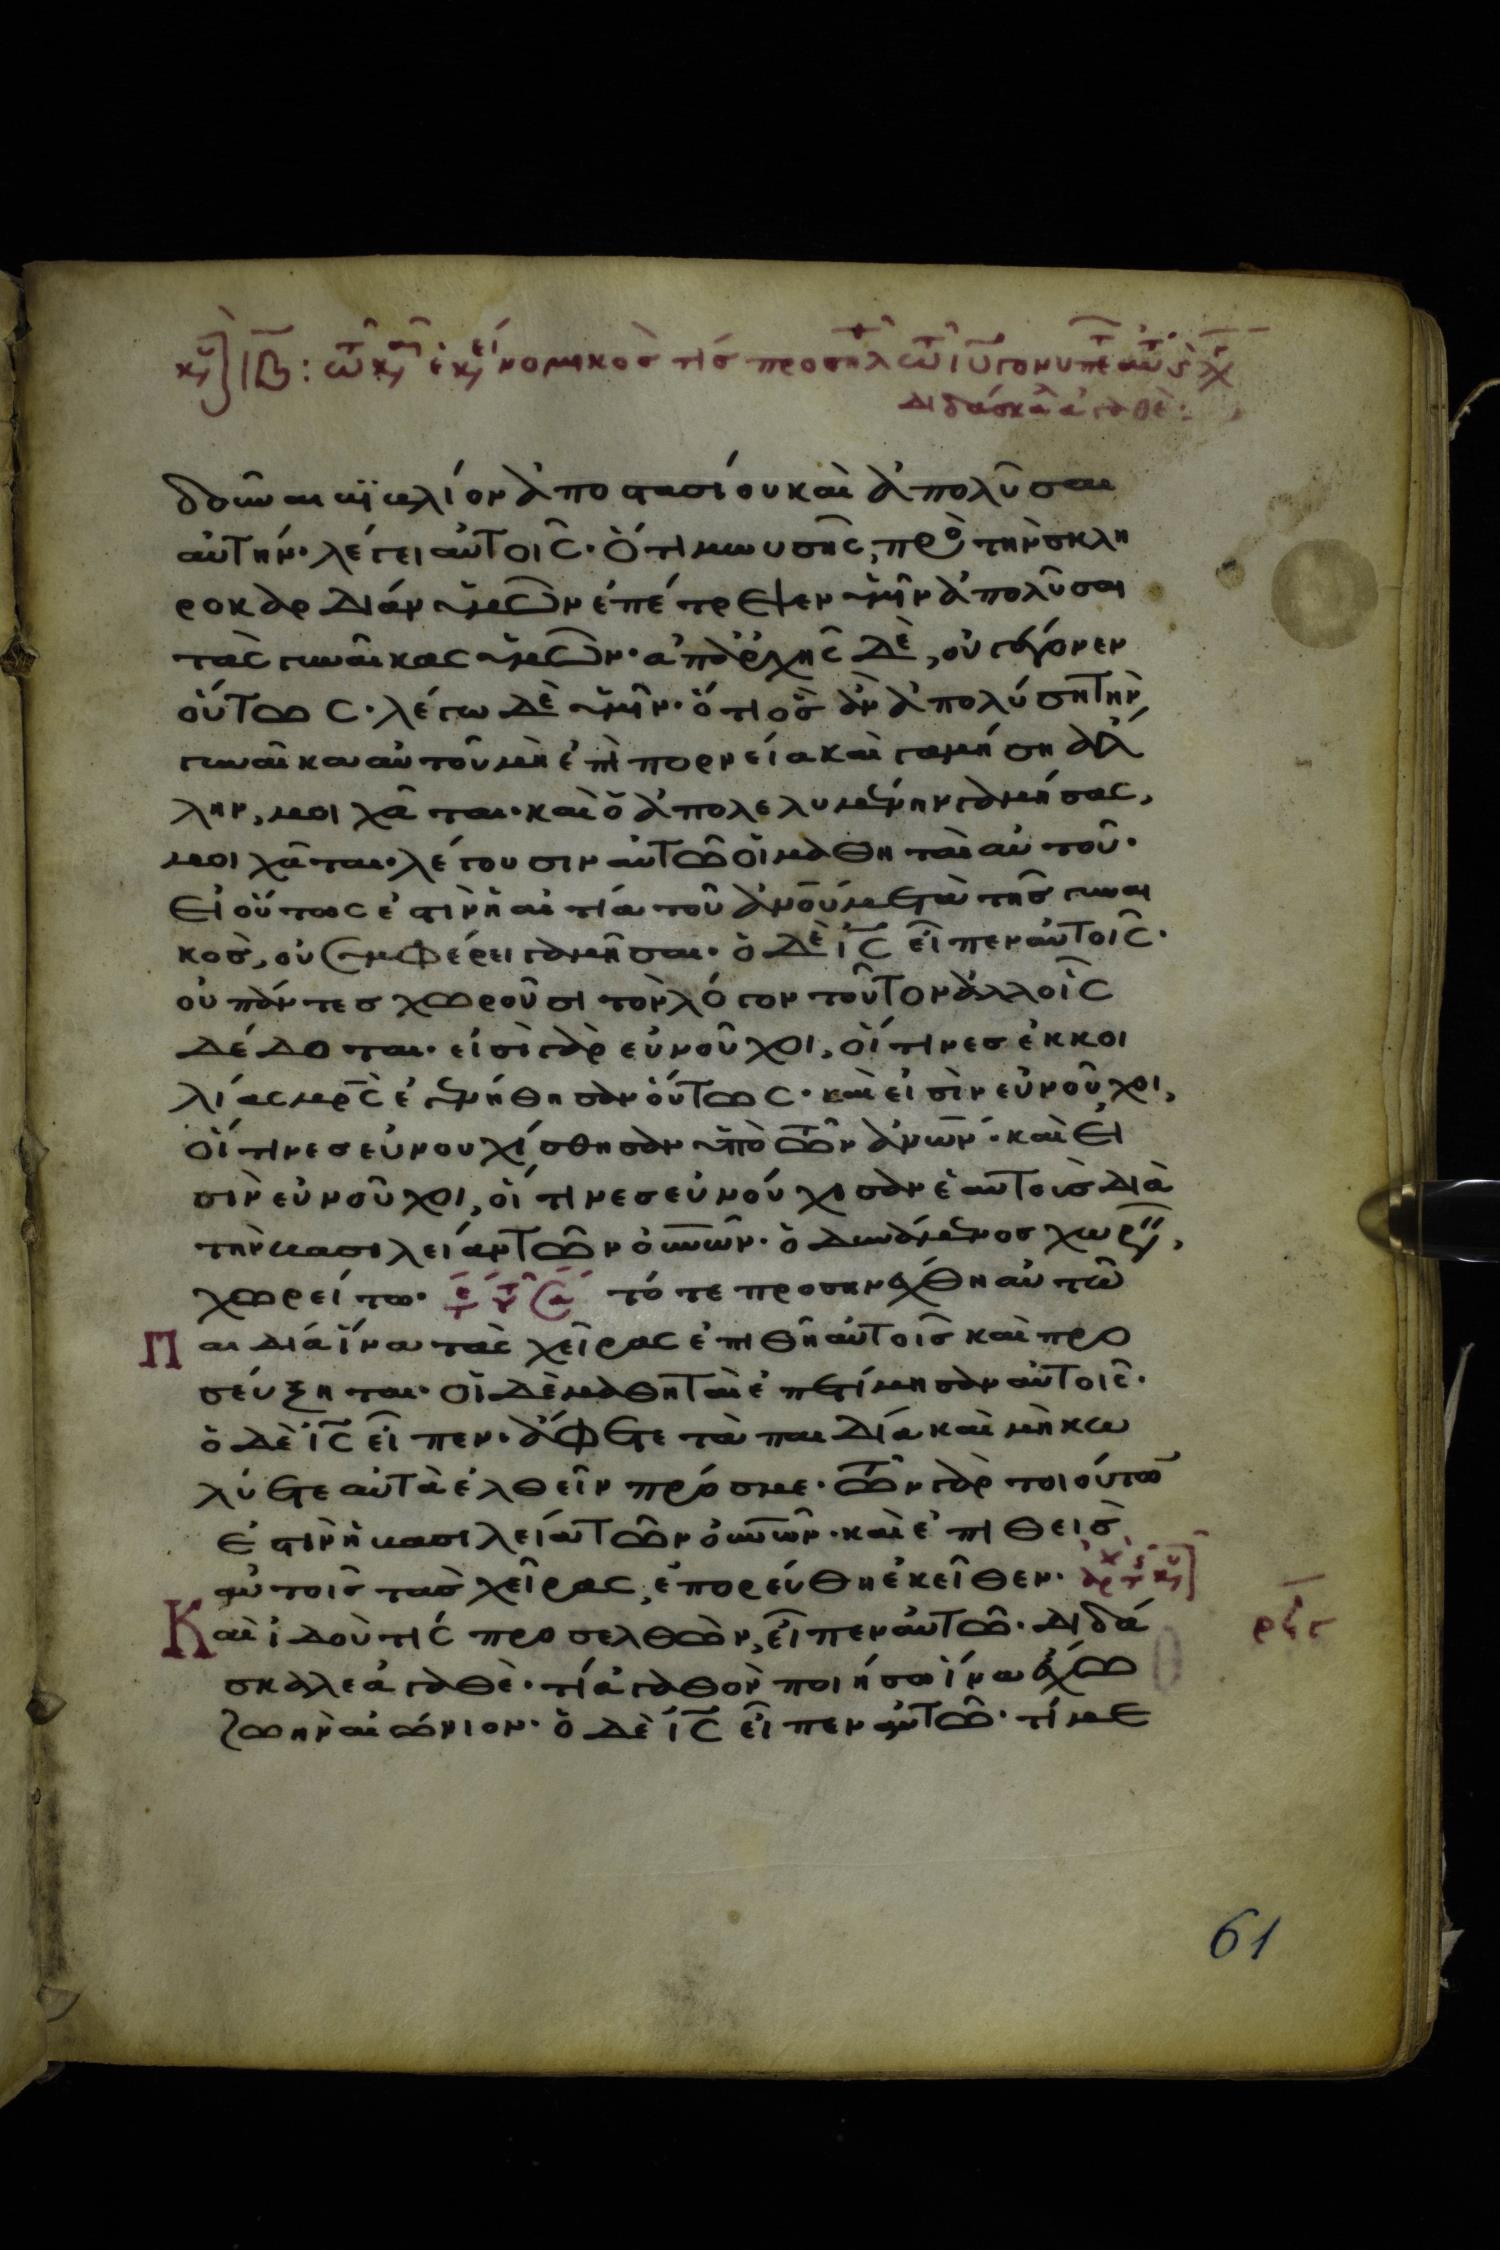 κυ ΙΒ: τω κ εκει νομικός τίς προσήλ τω ιυ γονυπε αυτ κ λε
διδάσκαλ αγαθέ:
δοῦναι βϊβλίον ἀποστασίου καὶ ἀπολῦσαι
αὐτήν· λέγει αὐτοῖς· ὅτι μωυσῆς, πρὸ τὴν σκλη
ροκαρδίαν ὑμῶν ἐπέτρεψεν ὑμῖν ἀπολῦσαι
τὰς γυναῖκας ὑμῶν· ἀπαρχῆς δὲ, οὐ γέγονεν
οὕτως· λέγω δὲ ὑμῖν· ὅτι ὃς ἂν ἀπολύση τὴν
γυναῖκα αὐτοῦ μὴ ἐπὶ πορνεία καὶ γαμήση ἄλ
λην, μοιχᾶται· καὶ ὁ ἀπολελυμένην γαμήσας,
μοιχᾶται· λέγουσιν αὐτῶ οἱ μαθηταὶ αὐτοῦ·
εἰ οὕτως ἐστὶν ἡ αἰτία τοῦ ἀνου μετὰ τῆς γυναι
κὸς, οὐ συμφέρει γαμῆσαι· ὁ δὲ ις εἶπεν αὐτοῖς·
οὐ πάντες χωροῦσι τὸν λόγον τοῦτον ἀλλ οἷς
δέδοται· εἰσὶ γὰρ εὐνοῦχοι, οἵτινες ἐκ κοι
λίας μρς ἐγεννήθησαν οὕτως· καὶ εἰσὶν εὐνοῦχοι,
οἵτινες εὐνουχίσθησαν ὑπὸ τῶν ἀνων· καὶ εἰ
σὶν εὐνοῦχοι, οἵτινες εὐνούχισαν ἑαυτοὺς διὰ
τὴν βασιλείαν τῶν οὐνων· ὁ δυνάμενος χωρεῖν,
χωρείτω· τότε προσηνέχθη αὐτῶ
Παιδία ἵνα τὰς χεῖρας ἐπιθῆ αὐτοῖς καὶ προ
σεύξηται· οἱ δὲ μαθηταὶ ἐπετίμησαν αὐτοῖς·
ὁ δὲ ις εἶπεν· ἄφετε τὰ παιδία καὶ μὴ κω
λύετε αὐτὰ ἐλθεῖν πρός με· τῶν γὰρ τοιούτων
ἐστὶν ἡ βασιλεία τῶν οὐνων· καὶ ἐπιθεὶς
αὐτοῖς τὰς χεῖρας, ἐπορεύθη ἐκεῖθεν·
Καὶ ἰδοὺ τίς προσελθὼν, εἶπεν αὐτῶ· διδά
σκαλε ἀγαθὲ· τί ἀγαθὸν ποιήσω ἵνα ἔχω
ζωὴν αἰώνιον· ὁ δὲ ις εἶπεν αὐτῶ· τί με
61